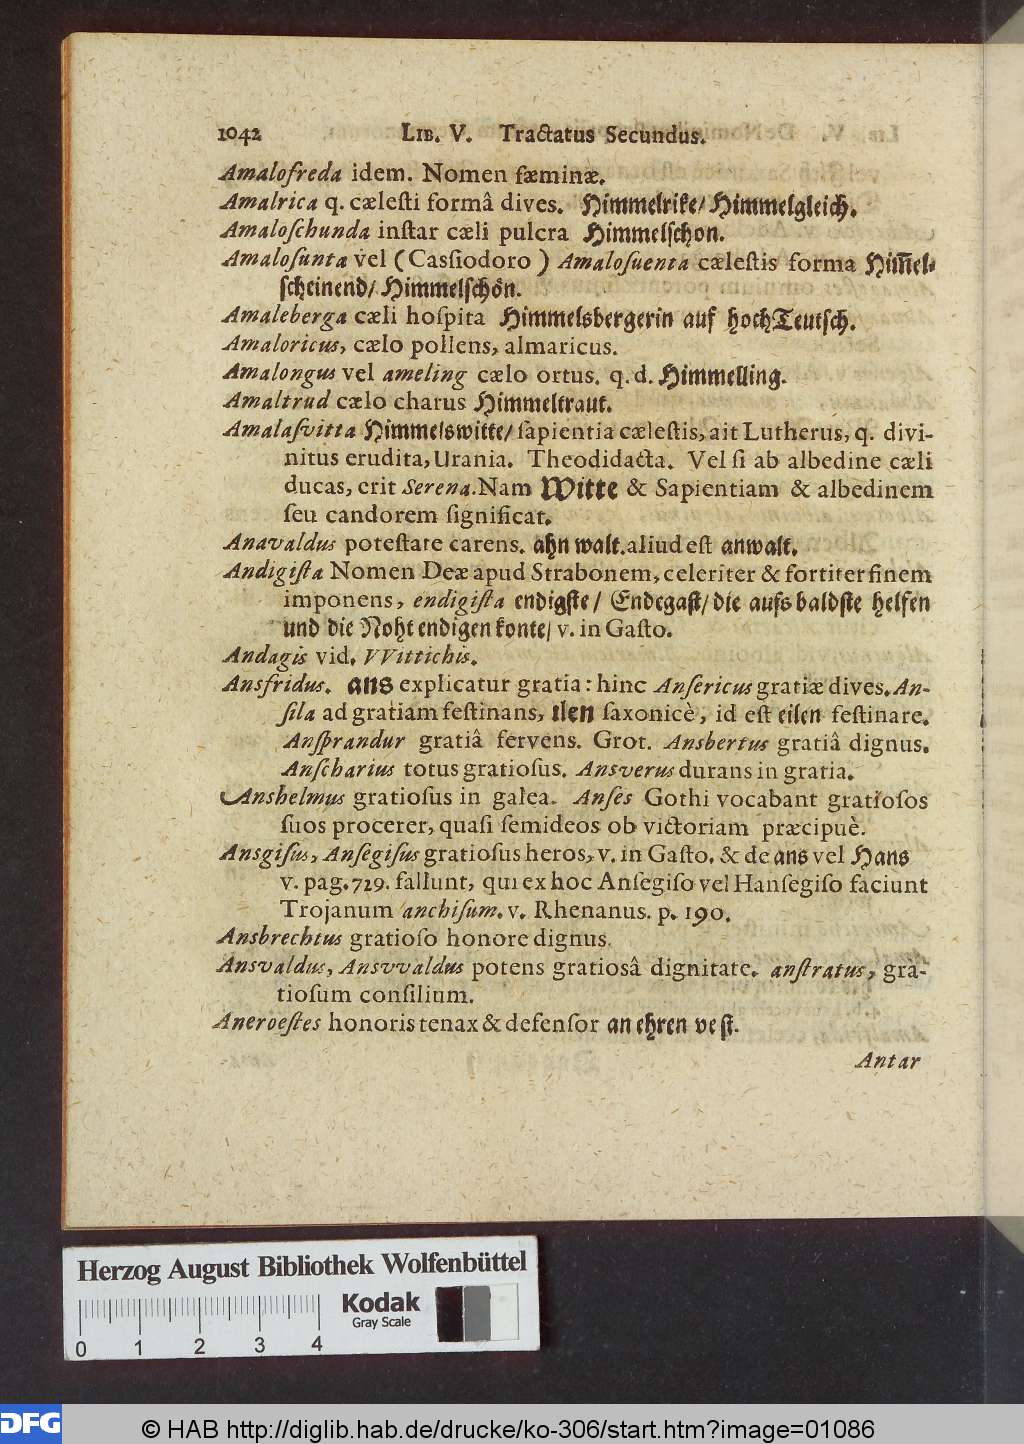 1042 LIB. V. Tractatus Secundus.
Amalofreda idem. Nomen fæminæ.
Amalrica q. cæleſti formâ dives. Himmelrike/ Himmelgleich.
Amaloſchunda inſtar cæli pulcra Himmelſchon.
Amaloſunta vel (Caſſiodoro) Amaloſuenta cæleſtis forma Him̃el-
ſcheinend/ Himmelſchön.
Amaleberga cæli hoſpita Himmelsbergerin auf hochTeutſch.
Amaloricus, cælo pollens, almaricus.
Amalongus vel ameling cælo ortus. q. d. Himmelling.
Amaltrud cælo charus Himmeltraut.
Amalaſvitta Himmelswitte/ ſapientia cæleſtis, ait Lutherus, q. divi-
nitus erudita, Urania. Theodidacta. Vel ſi ab albedine cæli
ducas, erit Serena. Nam Witte & Sapientiam & albedinem
ſeu candorem ſignificat.
Anavaldus poteſtate carens. ahn walt. aliud eſt anwalt.
Andigiſta Nomen Deæ apud Strabonem, celeriter & fortiter finem
imponens, endigiſta endigſte/ Endegaſt/ die aufs baldſte helfen
und die Noht endigen konte/ v. in Gaſto.
Andagis vid. VVittichis.
Ansfridus. ans explicatur gratia: hinc Anſericus gratiæ dives. An-
ſila ad gratiam feſtinans, ilen ſaxonicè, id eſt eilen feſtinare.
Anſprandur gratiâ fervens. Grot. Ansbertus gratiâ dignus.
Anſcharius totus gratioſus. Ansverus durans in gratia.
Anshelmus gratioſus in galea. Anſes Gothi vocabant gratioſos
ſuos procerer, quaſi ſemideos ob victoriam præcipuè.
Ansgiſus, Anſegiſus gratioſus heros, v. in Gaſto. & de ans vel Hans
v. pag. 729. fallunt, qui ex hoc Anſegiſo vel Hanſegiſo faciunt
Trojanum anchiſum. v. Rhenanus. p. 190.
Ansbrechtus gratioſo honore dignus.
Ansvaldus, Ansvvaldus potens gratiosâ dignitate. anſtratus, gra-
tioſum conſilium.
Aneroeſtes honoris tenax & defenſor an ehren veſt.
Antar
Herzog August Bibliothek Wolfenbüttel
Kodak
Gray Scale
0 1 2 3 4
DFG © HAB http://diglib.hab.de/drucke/ko-306/start.htm?image=01086